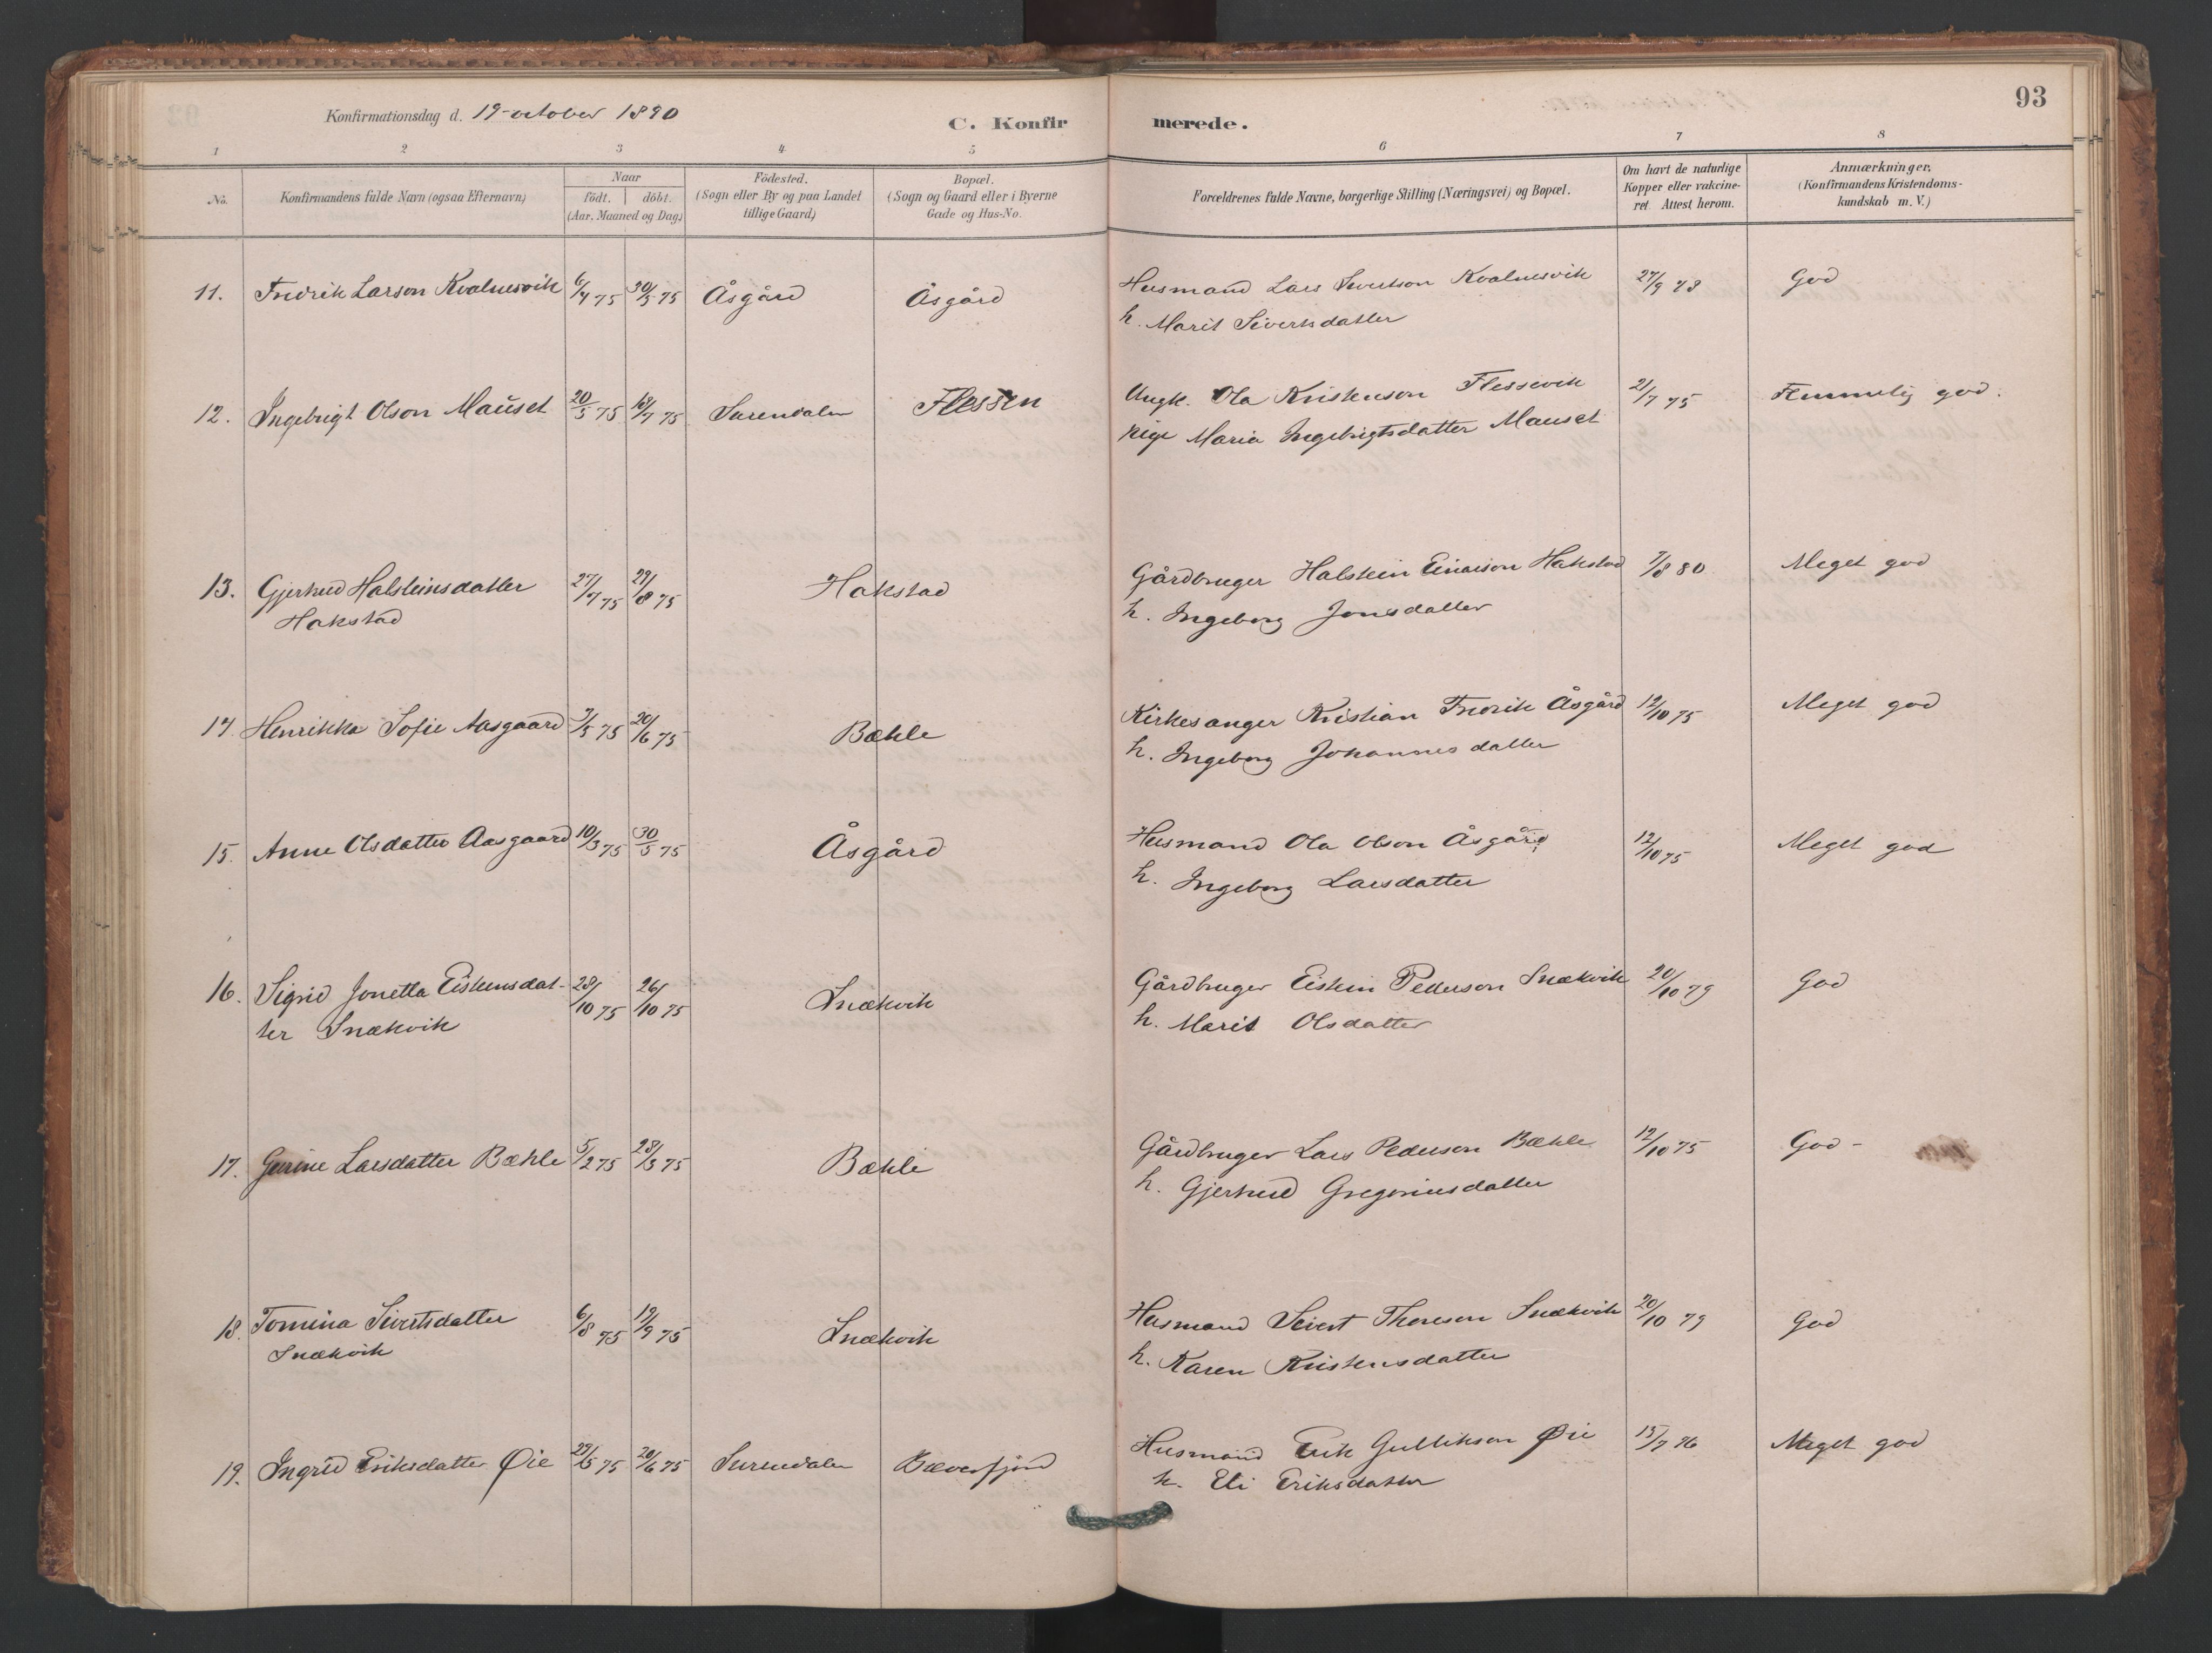 93
Konfirmationsdag d. 19-october 1890
C. Konfirmerede.
1 2 3 4 5 6 7 8
No.
Konfirmandens fulde Navn (ogsaa Efternavn)
Naar
födt. döbt.
(Aar, Maaned og Dag.)
Födested.
(Sogn eller By og paa Landet
tillige Gaard.)
Bopæl.
(Sogn og Gaard eller i Byerne
Gade og Hus-No.
Forældrenes fulde Navne, borgerlige Stilling (Næringsvei) og Bopæl.
Om havt de naturlige
Kopper eller vakcine-
ret. Attest herom.
Anmærkninger.
(Konfirmandens Kristendoms-
kundskab m. V.)
11. Fredrik Larson Kvalnesvik 6/4 75 30/5 75 Åsgård Åsgård Husmand Lars Sivertson Kvalnesvik 27/9 78 God
h. Marit Sivertsdatter
12. Ingebrigt Olson Mauset 20/5 75 18/7 75 Surendalen Flessen Ungk. Ola Kristenson Flessevik 21/7 75 Temmelig god.
pige Maria Ingebrigtsdatter Mauset
13. Gjertrud Halsteinsdatter 27/7 75 29/8 75 Hakstad Gårdbruger Halstein Einarson Hakstad 7/8 80 Meget god
Hakstad h. Ingeborg Jonsdatter
14. Henrikka Sofie Aasgaard 7/5 75 20/6 75 Bæhle Kirkesanger Kristian Fredrik Åsgård 12/10 75 Meget god
h. Ingeborg Johannesdatter
15. Anne Olsdatter Aasgaard 10/3 75 30/5 75 Åsgård Husmand Ola Olson Åsgård 12/10 75 Meget god
h. Ingeborg Larsdatter
16. Sigrid Jonetta Eistensdat- 28/10 75 26/10 75 Snækvik Gårdbruger Eistein Pederson Snækvik 20/10 79 God
ter Snækvik h. Marit Olsdatter
17. Gurine Larsdatter Bæhle 5/2 75 28/3 75 Bæhle Gårdbruger Lars Pederson Bæhle 12/10 75 God -
h. Gjertrud Gregoriusdatter
18. Tomina Sivertsdatter 6/8 75 19/9 75 Snækvik Husmand Sivert Thoreson Snækvik 20/10 79 God
Snækvik h. Karen Kristensdatter
19. Ingrid Eriksdatter Øie 29/5 75 20/6 75 Surendalen Bæverfjord Husmand Erik Gulikson Øie 15/7 76 Meget god
h. Eli Eriksdatter